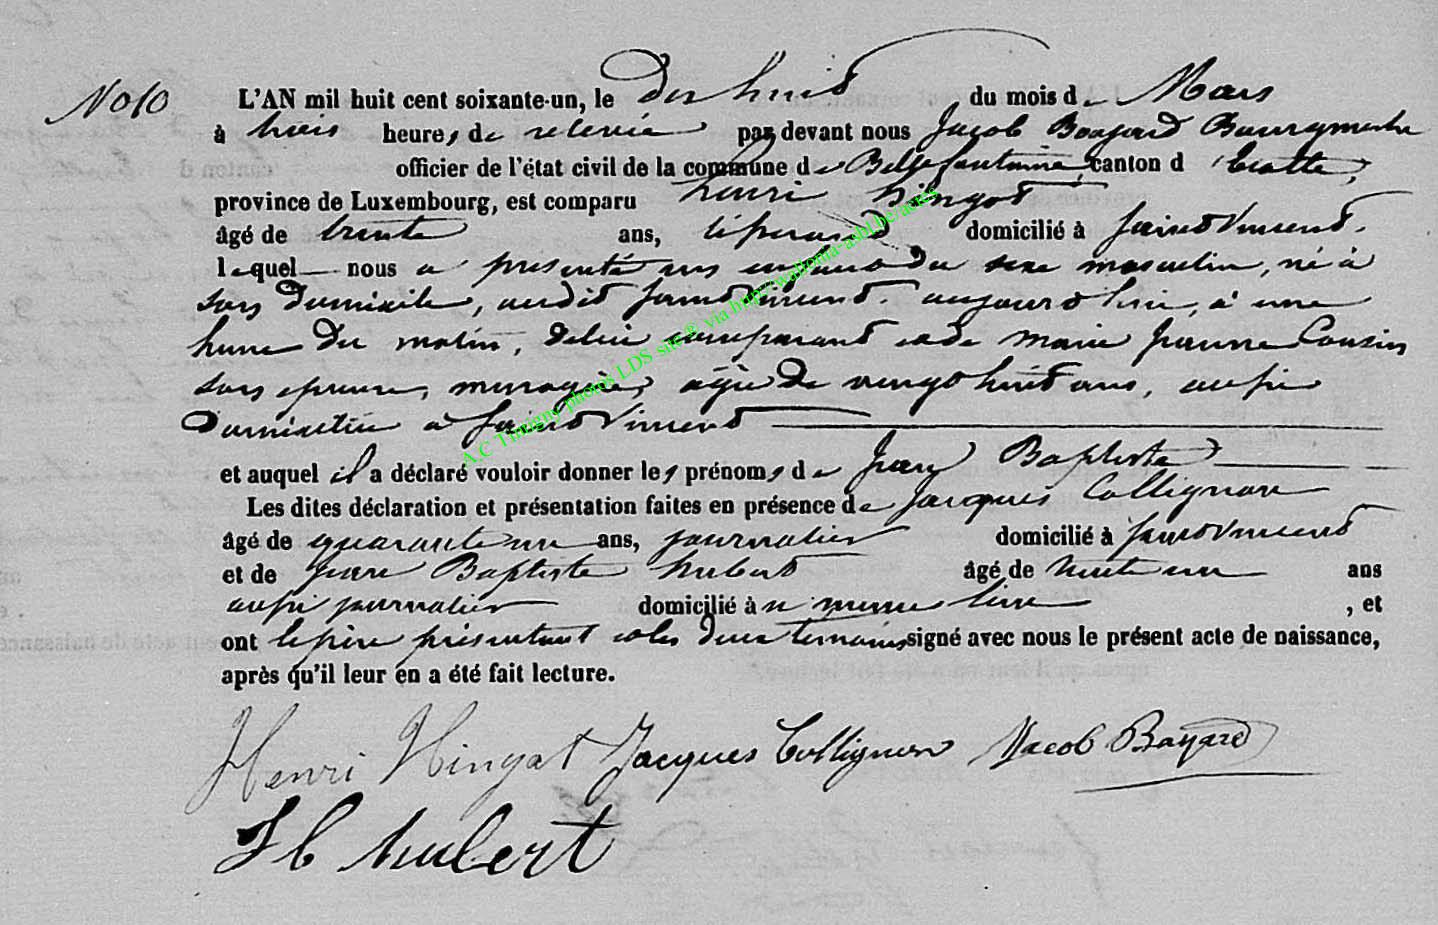 No 10
L'AN mil huit cent soixante-un, le dix huit du mois de Mars
à trois heures de relevée par devant nous Jacob Bayard Bourgmestre
officier de l'état civil de la commune de Bellefontaine, canton d'Etalle,
province de Luxembourg, est comparu henri hingot
âgé de trente ans, domicilié à Saint Vincent,
lequel nous a présenté un enfant du sexe masculin, né à
son domicile, audit Saint Vincent, aujourd'hui, à une
heure du matin, de lui comparant et de marie jeanne Cousin
son epouse, menagère, agée de vingt huit ans, aussi
domiciliée à Saint Vincent
et auquel il a déclaré vouloir donner les prénoms de jean Baptiste
Les dites déclaration et présentation faites en présence de jacques Collignon
âgé de quarante un ans, journalier domicilié à Saint Vincent
et de jean Baptiste hubert âgé de trente un ans
aussi journalier domicilié à u meme lieu, et
ont le père présentant et les deux temoins signé avec nous le présent acte de naissance,
après qu'il leur en a été fait lecture.
Henri Hingot Jacques Collignon Jacob Bayard
J b hubert
A.C Tintigny photos LDS site & via http://wallonia-asbl.be/actes